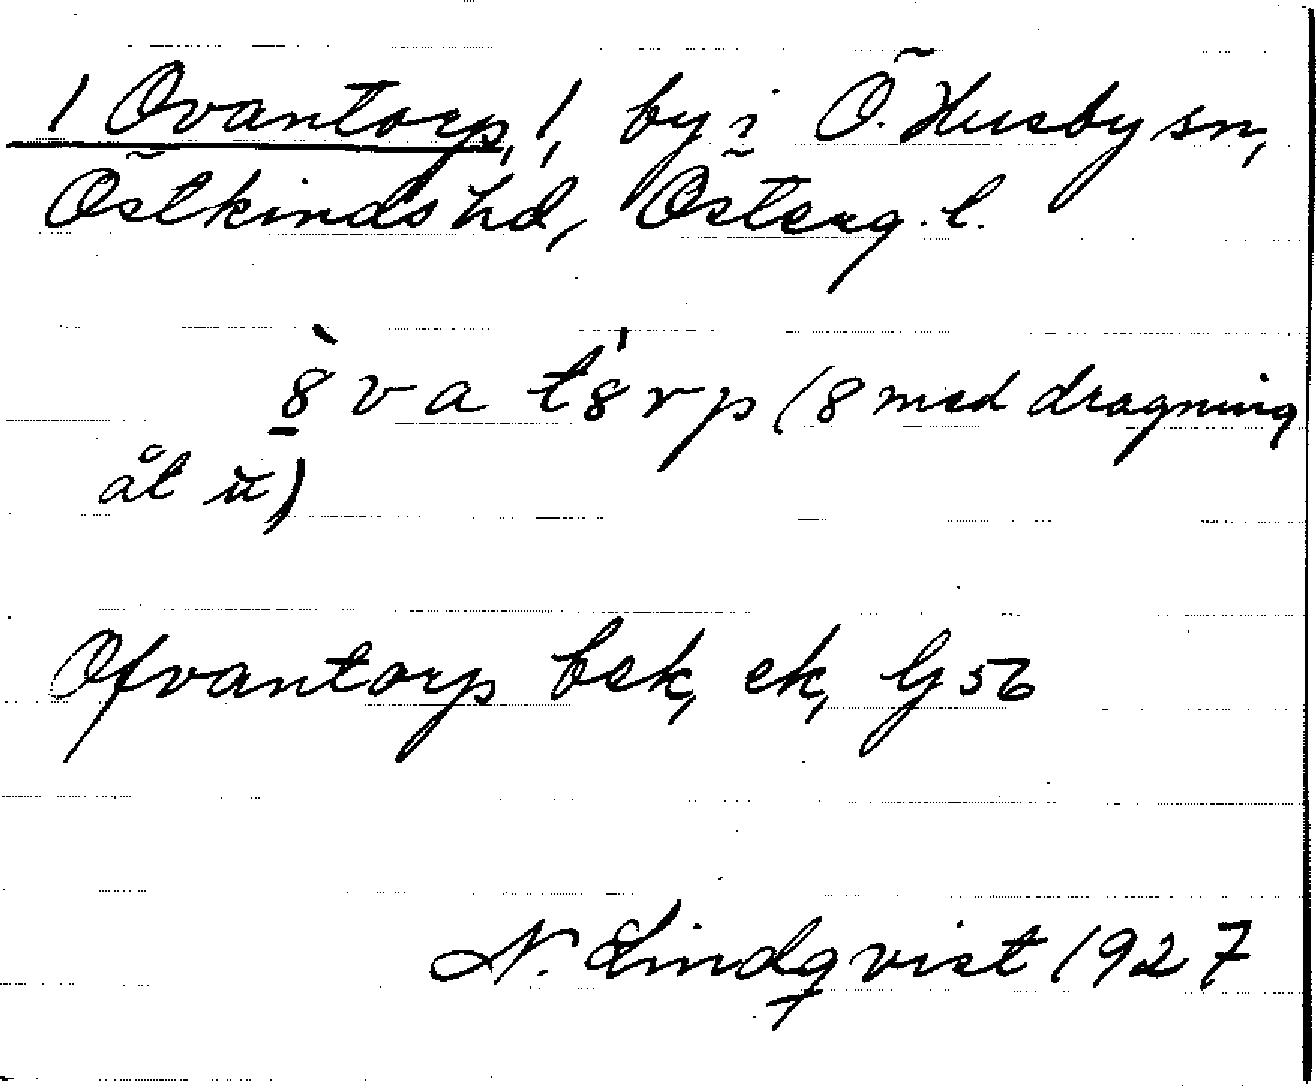 / Ovantorp, /, by i Ö. Husby sn,
Östkinds hd, Österg. l.
8̱̀ v a t 8́ r p (8 med dragning
åt u)
Ofvantorp bek, ek, Gj 56
N. Lindqvist 1927